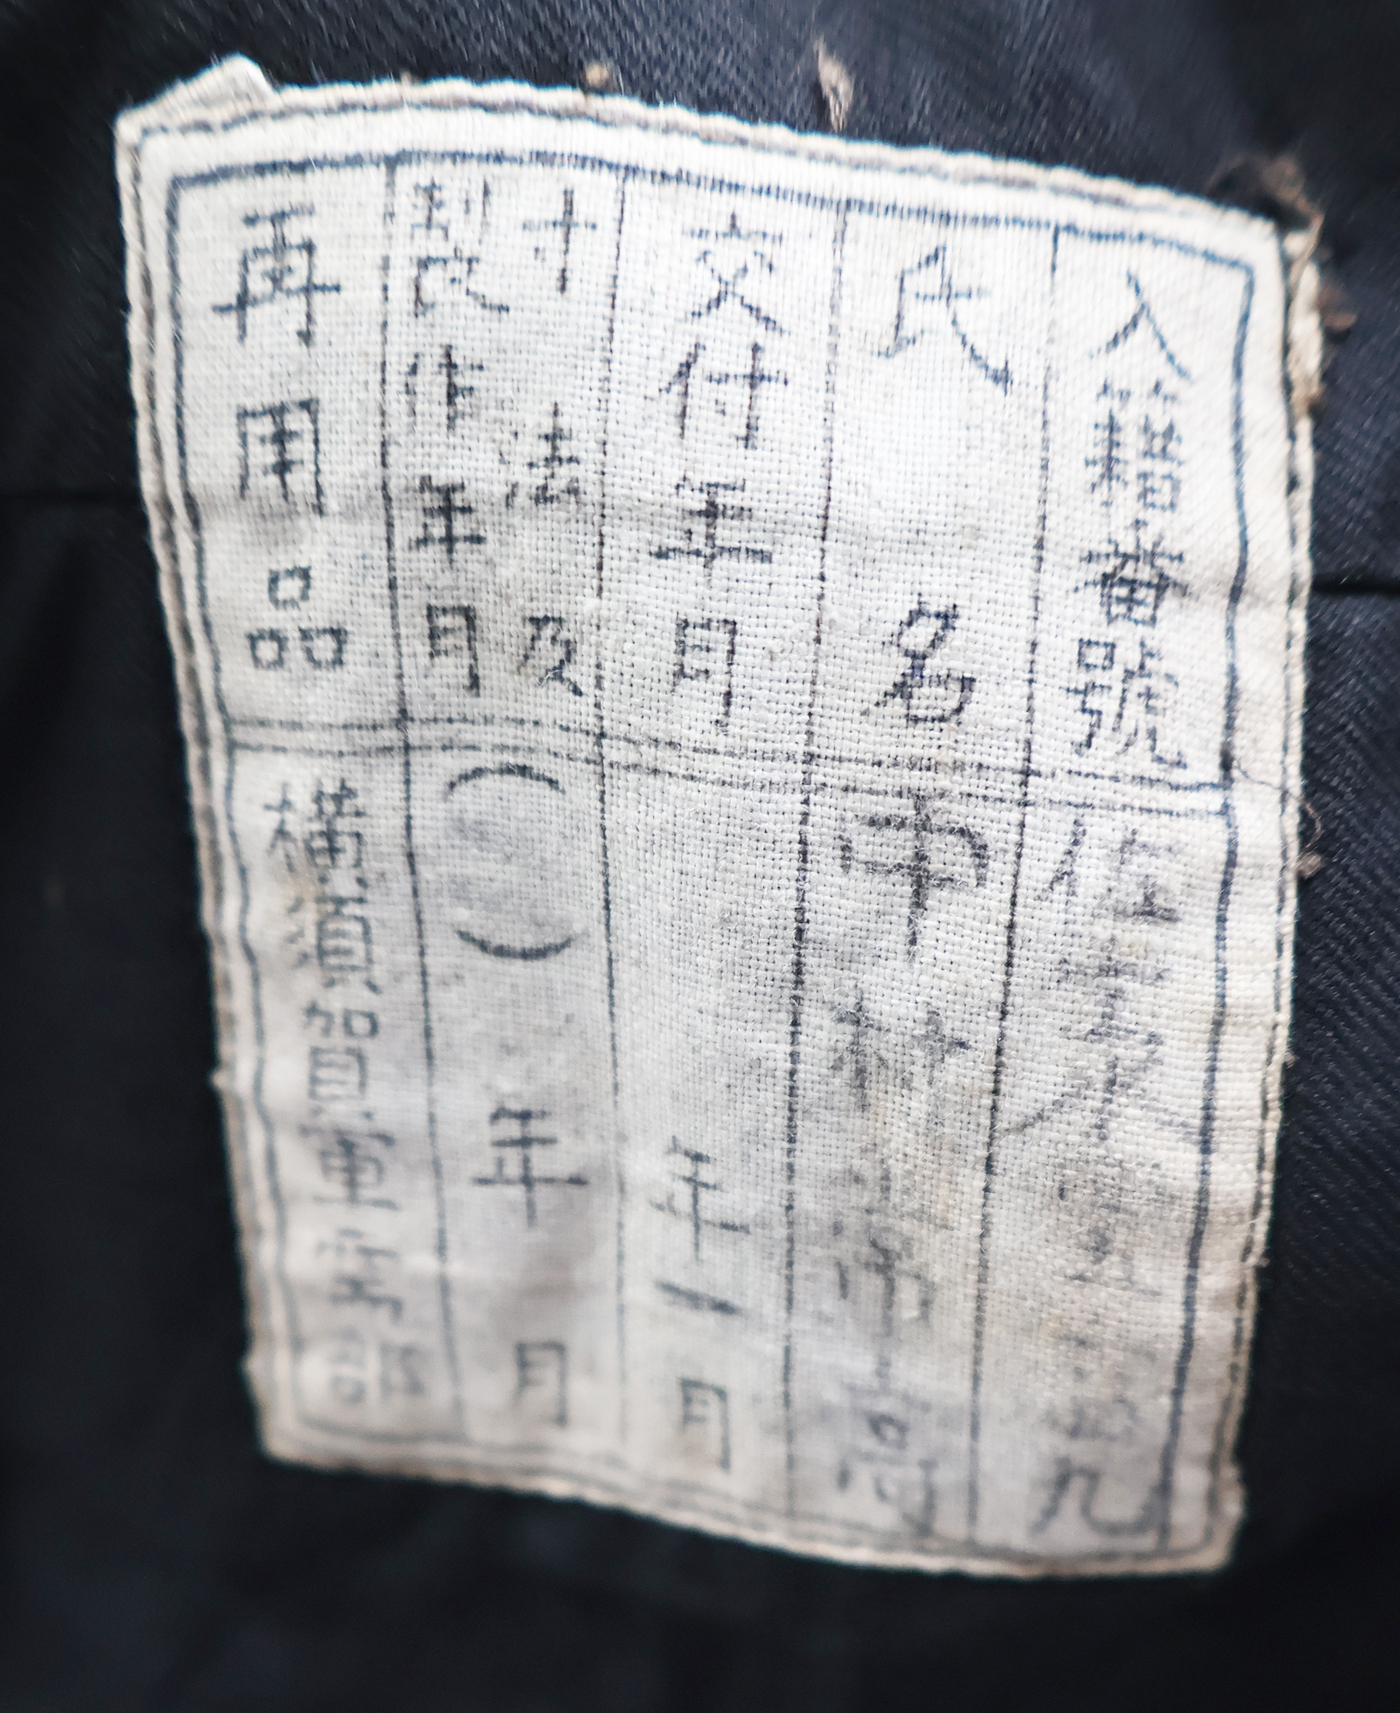 入籍番號 佐 九
氏名 中村
交付年月 年一月
寸法及
製改作年月 ( ) 年 月
再用品 横須賀軍需部